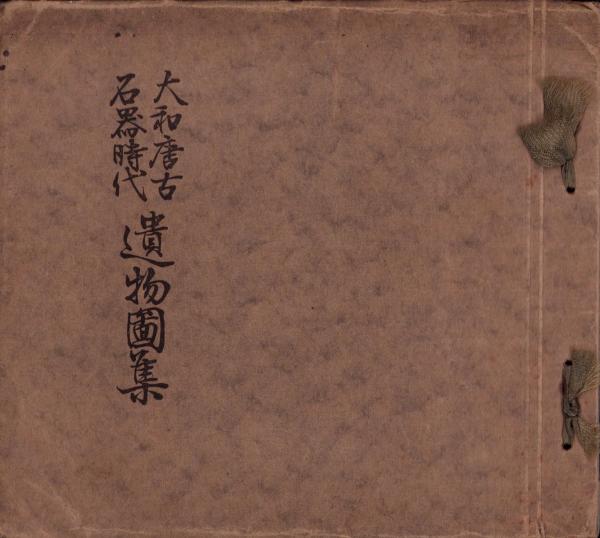 大和唐古
石器時代
遺物圖集